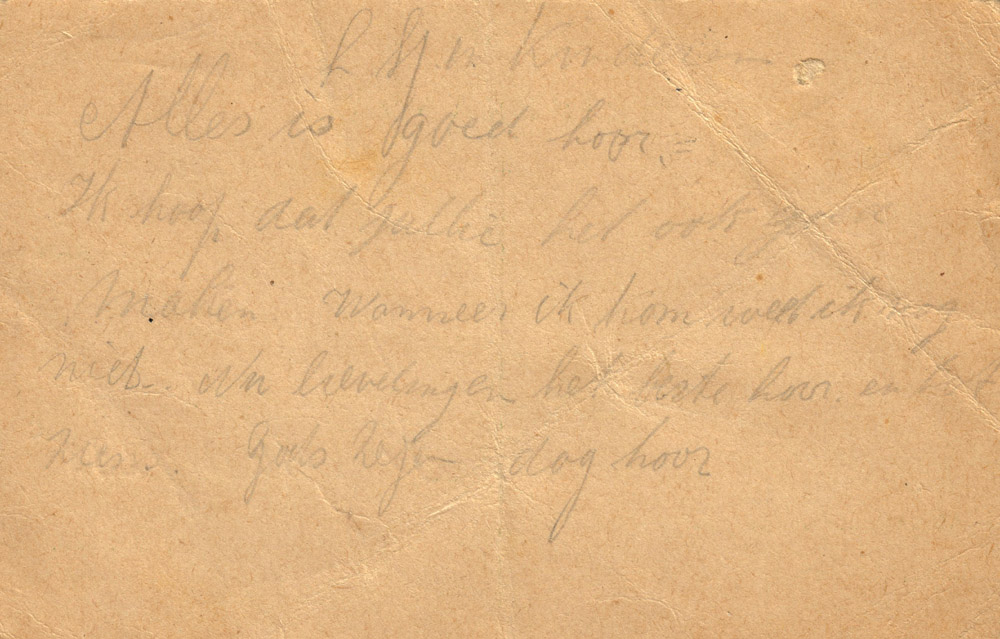 Alles is goed hoor.=
Ik hoop dat jullie het ook
maken Wanneer ik kom weet ik nog
niet. Nu lievelingen het beste hoor. en
Gods Zegen dag hoor